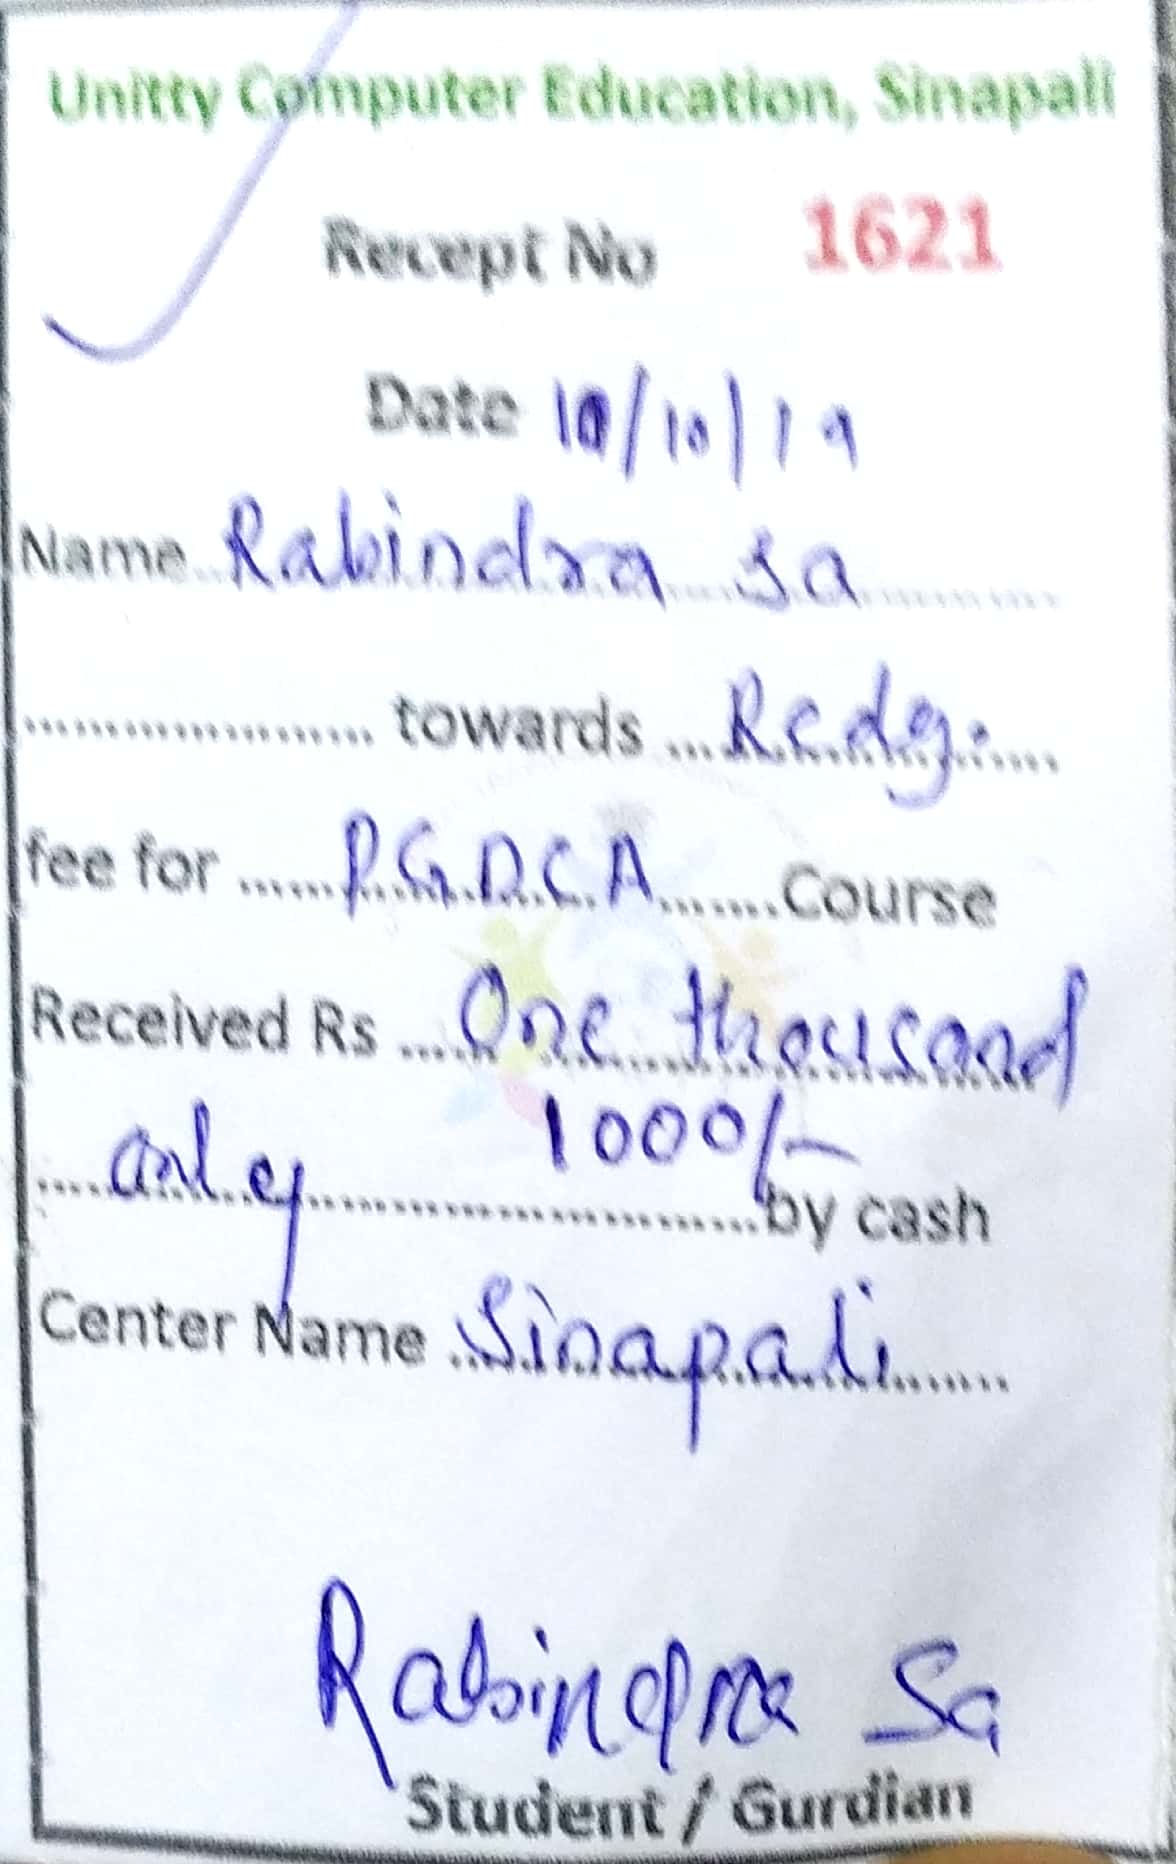 Unitty Computer Education, Sinapali
Recept No 1621
Date 10/10/19
Name Rabindra sa
towards Redg.
fee for P.G.D.C.A Course
Received Rs One thousand
only 1000/- by cash
Center Name Sinapali
Rabindra Sa
Student / Gurdian